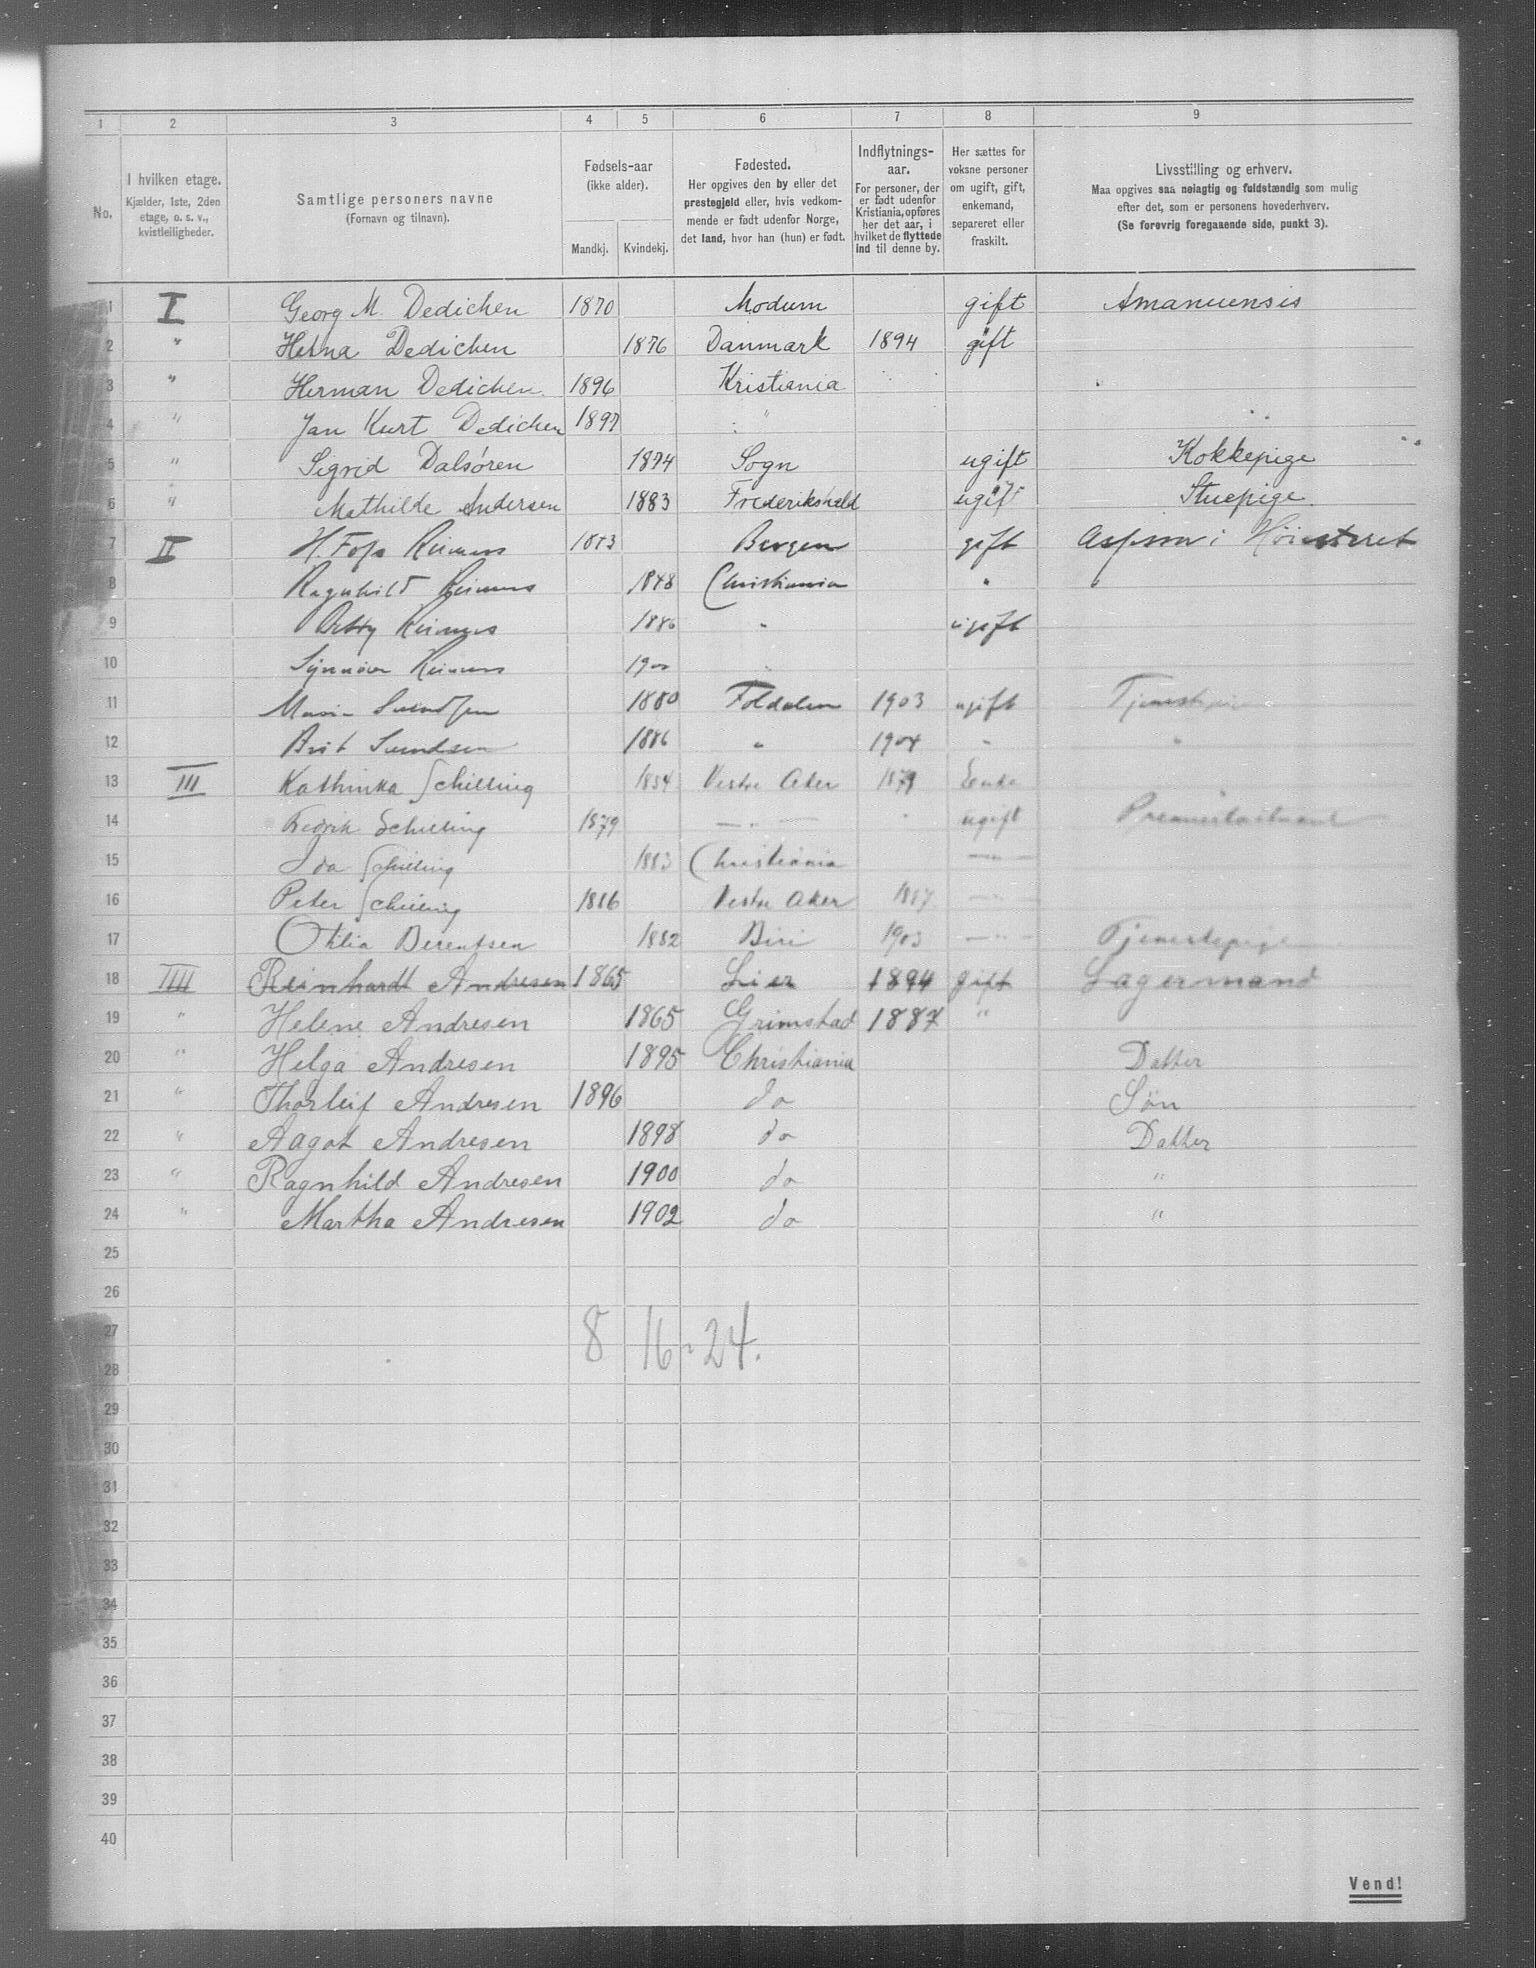 1 2 3 4 5 6 7 8 9
No.
I hvilken etage.
Kjælder, 1ste, 2den
etage, o. s. v.,
kvistleiligheder.
Samtlige personers navne
(Fornavn og tilnavn).
Fødsels-aar
(ikke alder).
Mandkj. Kvindekj.
Fødested.
Her opgives den by eller det
prestegjeld eller, hvis vedkom-
mende er født udenfor Norge,
det land, hvor han (hun) er født.
Indflytnings-
aar.
For personer, der
er født udenfor
Kristiania, opføres
her det aar, i
hvilket de flyttede
ind til denne by.
Her sættes for
voksne personer
om ugift, gift,
enkemand,
separeret eller
fraskilt.
Livsstilling og erhverv.
Maa opgives saa nøiagtig og fuldstændig som mulig
efter det, som er personens hovederhverv.
(Se forøvrig foregaaende side, punkt 3).
1 I Georg M. Dedichen 1870 Modum gift Amanuensis
2 " Dedichen 1876 Danmark 1894 gift
3 " Herman Dedichen 1896 Kristiania
4 " Jan Kurt Dedichen 1897 "
5 " Sigrid Dalsøren 1874 Sogn ugift Kokkepige
6 " Mathilde Andersen 1883 Frederikshald ugift Stuepige
7 II H. Reimers Bergen gift i Høiesteret
8 Ragnhild Reimers 1848 Christiania "
9 Betty Reimers 1886 " ugift
10 Synnøve Reimers 1900 "
11 1880 Foldalen 1903 ugift Tjenestepige
12 Brit Svendsen 1886 " 1904 " "
13 III Kathinka Schilling 1854 Vestre Aker 1879 Enke
14 Fredrik Schilling 1879 — " — " ugift Premierløitnant
15 Ida Schilling 1883 Christiania — " —
16 Peter Schilling 1886 Vestre Aker 1887 — " —
17 Otilia Berentsen 1882 Biri 1903 — " — Tjenestepige
18 IIII Reinhardt Andresen 1865 Lier 1894 gift Lagermand
19 " Helene Andresen 1865 Grimstad 1887 "
20 " Helga Andresen 1895 Christiania Datter
21 " Thorleif Andresen 1896 do Søn
22 " Aagot Andresen 1898 do Datter
23 " Ragnhild Andresen 1900 do "
24 " Martha Andresen 1902 do "
25
26
27
8 16 = 24.
28
29
30
31
32
33
34
35
36
37
38
39
40
Vend!